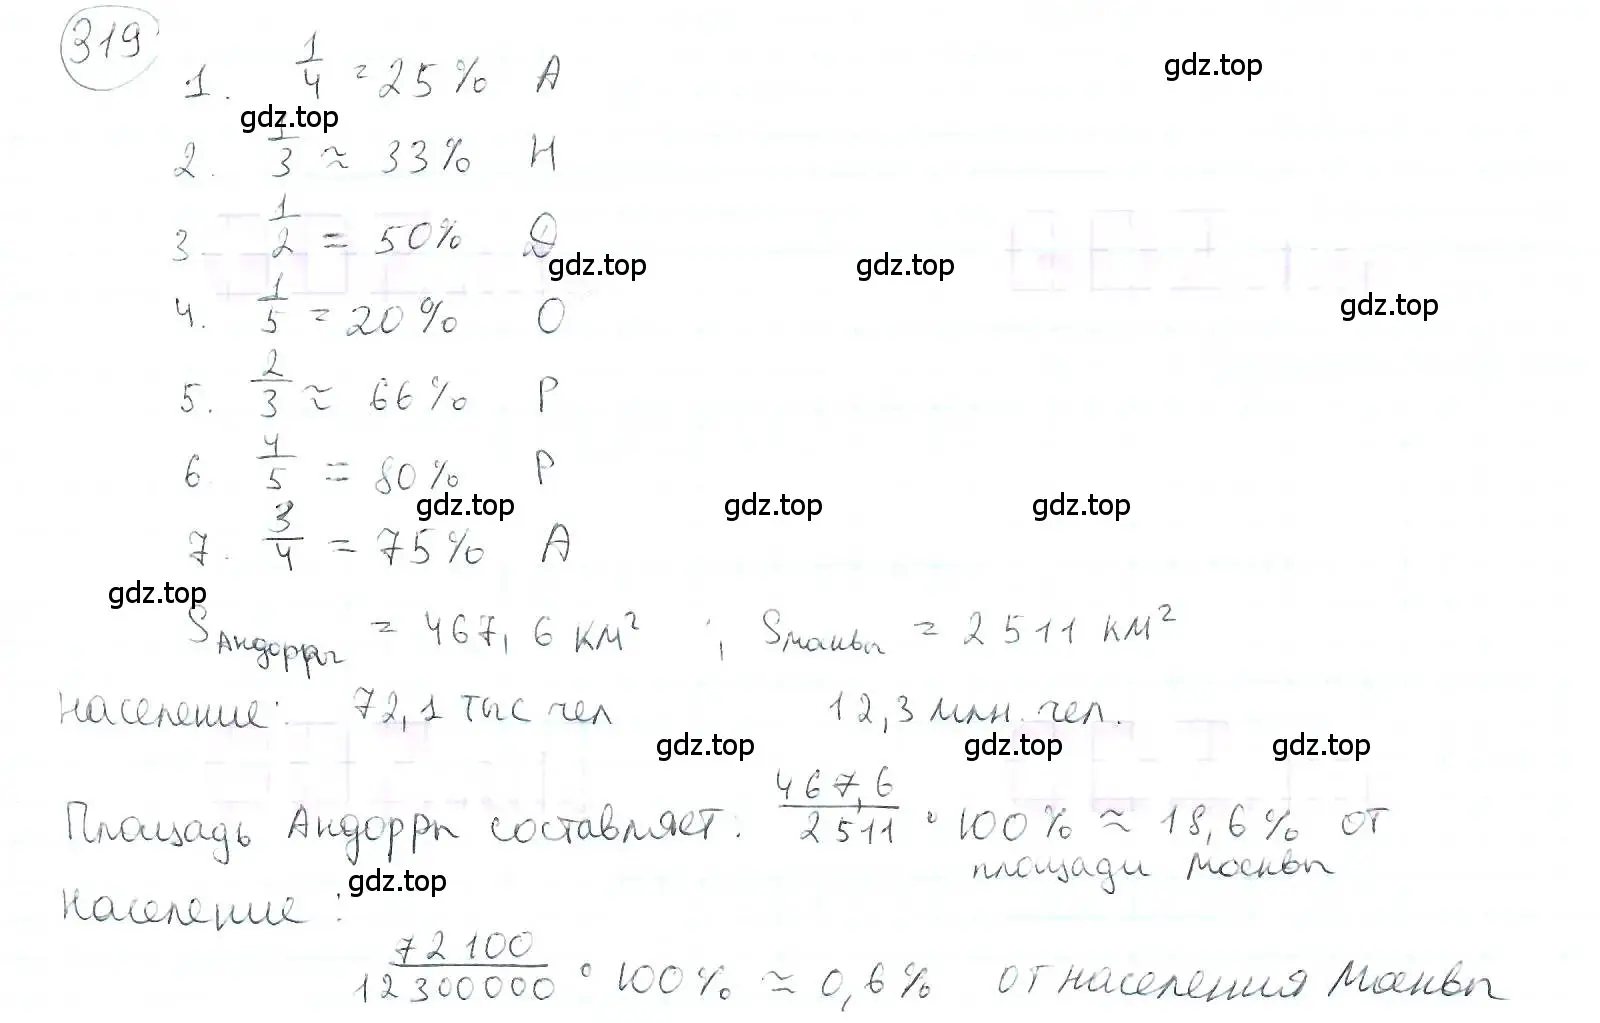 319
gdz.top
1. 1/4 = 25% А
gdz.top
2. 1/3 ≈ 33% Н
3. 1/2 = 50% Д
gdz.top gdz.top
gdz.top
4. 1/5 = 20% О
5. 2/3 ≈ 66% Р
6. 4/5 = 80% Р
gdz.top gdz.top gdz.top
7. 3/4 = 75% А
gdz.top
S Андорры = 467,6 км² ; S Москвы = 2511 км²
население: 72,1 тыс чел 12,3 млн. чел.
gdz.top gdz.top gdz.top
Площадь Андорры составляет: 467,6/2511 · 100% ≈ 18,6% от
площади Москвы
gdz.top
Население:
72100/12300000 · 100% ≈ 0,6% от населения Москвы